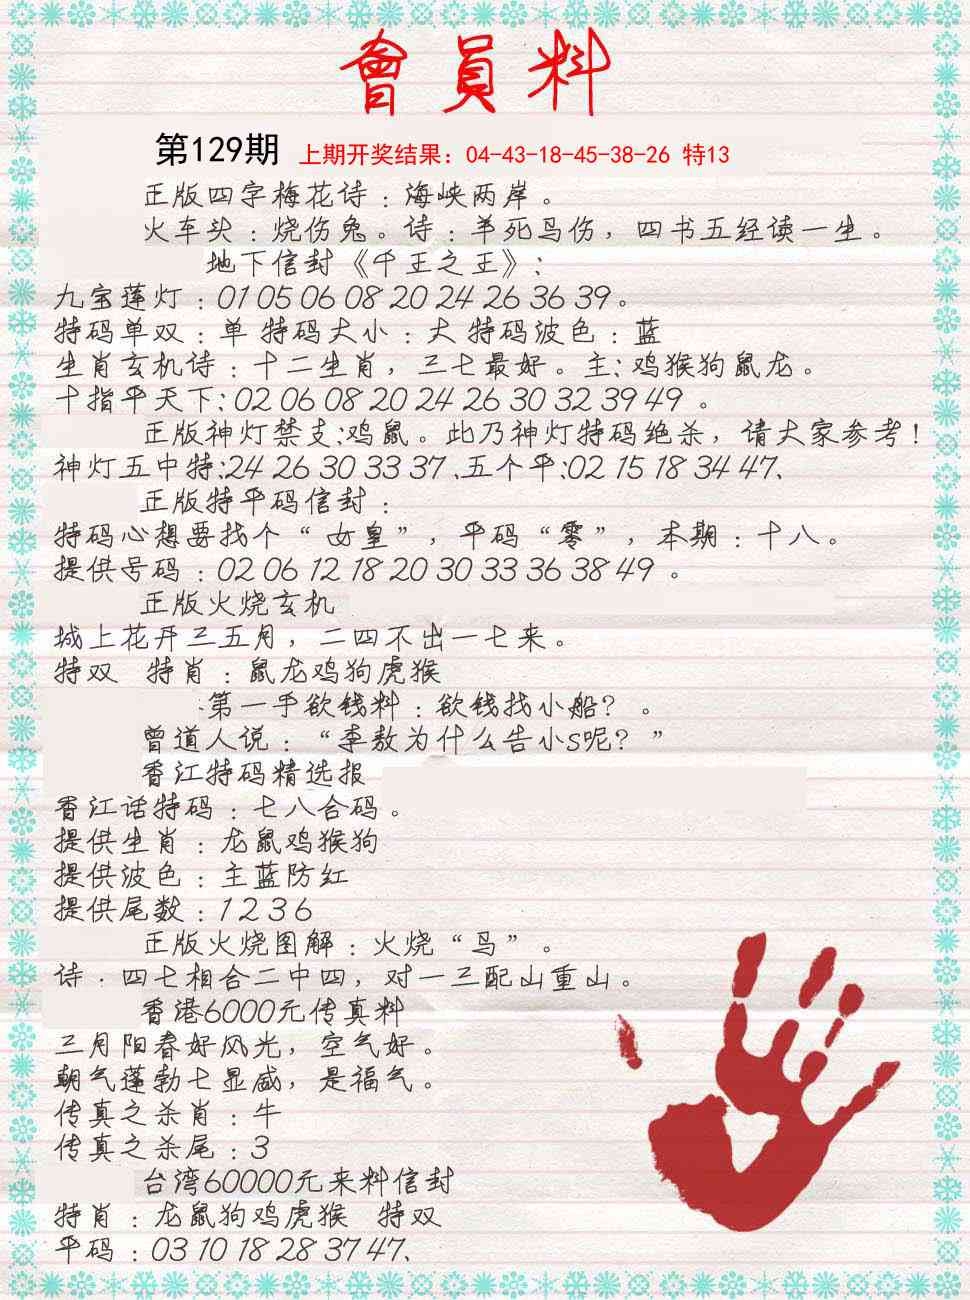 會員料
第129期 上期开奖结果：04-43-18-45-38-26 特13
正版四字梅花诗：海峡两岸。
火车头：烧伤兔。诗：羊死马伤，四书五经读一生。
地下信封《千王之王》：
九宝莲灯：01 05 06 08 20 24 26 36 39。
特码单双：单 特码大小：大 特码波色：蓝
生肖玄机诗：十二生肖，三七最好。主：鸡猴狗鼠龙。
十指平天下：02 06 08 20 24 26 30 32 39 49 。
正版神灯禁支：鸡鼠。此乃神灯特码绝杀，请大家参考！
神灯五中特：24 26 30 33 37 、五个平：02 15 18 34 47、
正版特平码信封：
特码心想要找个“ 女皇”，平码“零”，本期：十八。
提供号码：02 06 12 18 20 30 33 36 38 49 。
正版火烧玄机
城上花开三五月，二四不出一七来。
特双 特肖：鼠龙鸡狗虎猴
第一手欲钱料：欲钱找小船？。
曾道人说：“李敖为什么告小S呢？”
香江特码精选报
香江话特码：七八合码。
提供生肖：龙鼠鸡猴狗
提供波色：主蓝防红
提供尾数：1 2 3 6
正版火烧图解：火烧“鸟”。
诗：四七相合二中四，对一三配山重山。
香港6000元传真料
三月阳春好风光，空气好。
朝气蓬勃七显威，是福气。
传真之杀肖：牛
传真之杀尾：3
台湾60000元来料信封
特肖：龙鼠狗鸡虎猴 特双
平码：03 10 18 28 37 47、